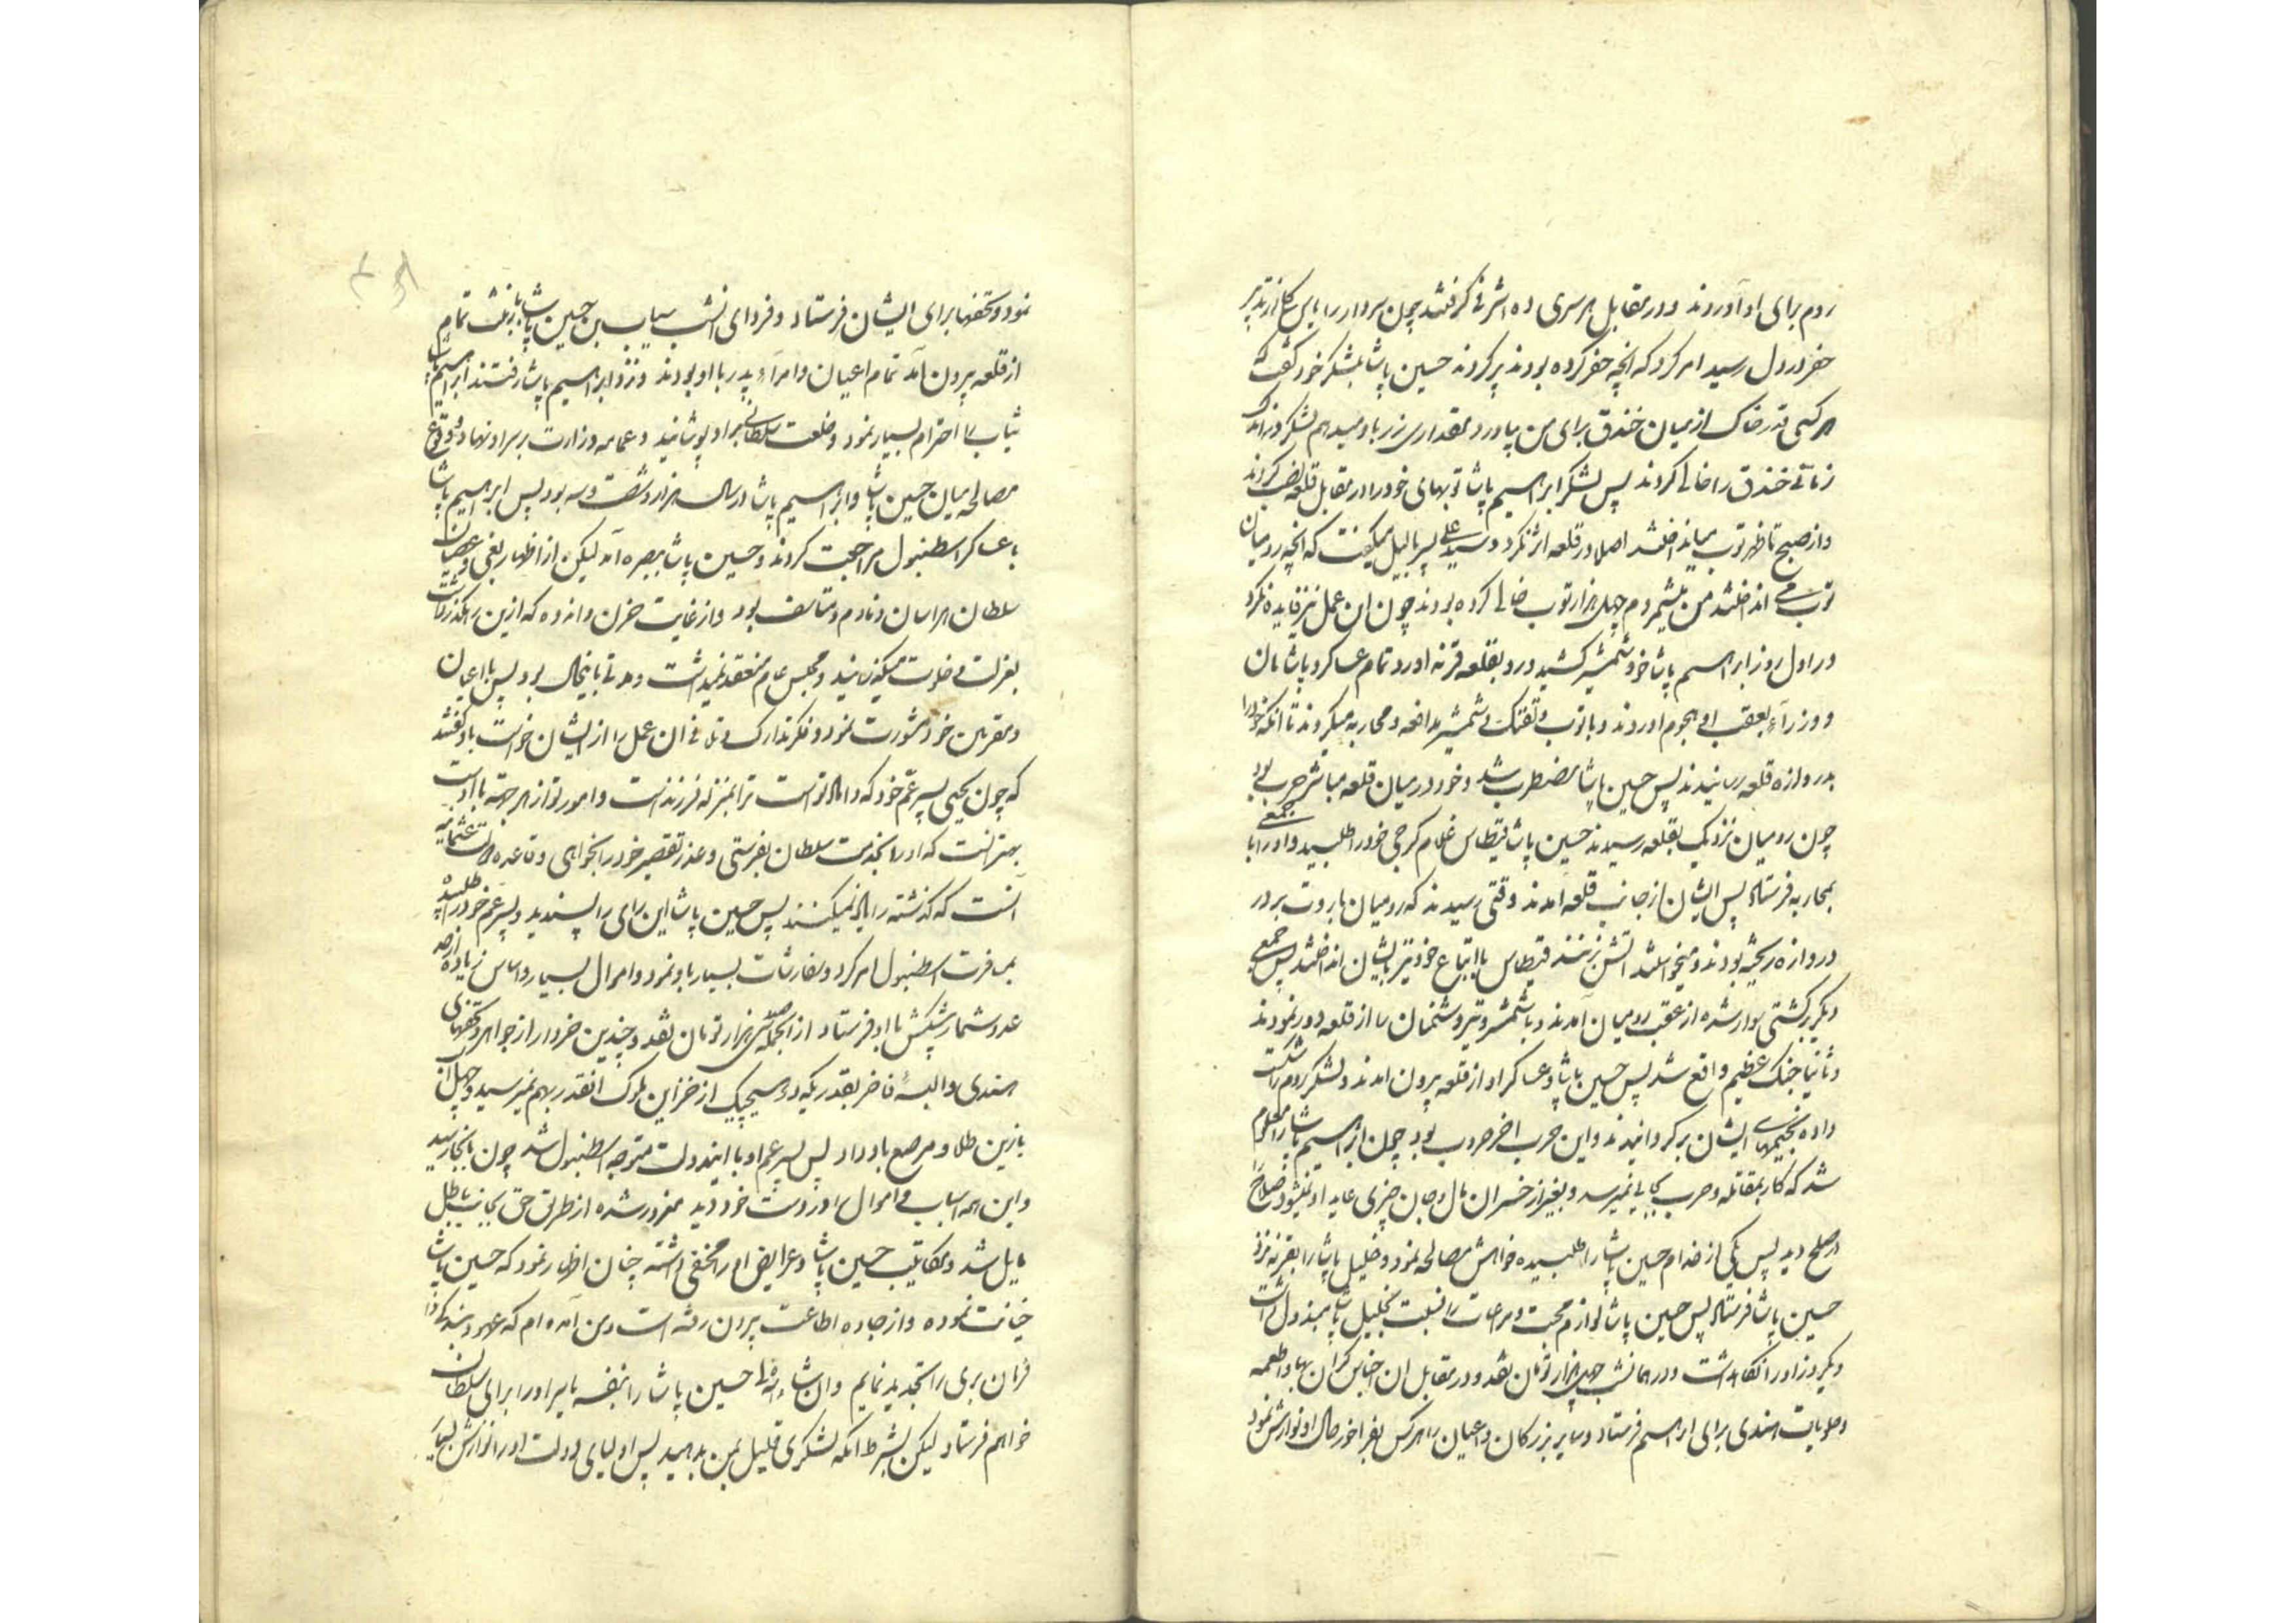 روم برای او آوردند و در مقابل هر سری ده اشرفی گرفتند چون سردار را یاس کلی از تدبیر
حفر در دل رسید امر کرد که انچه حفر کرده بودند پر کردند حسین پاشا بلشکر خود گفت که
هر کسی قدر خاک از میان خندق برای من بیاورد بمقداری زر باو میدهم لشکر در اندک
زمانی خندق را خالی کردند پس لشکر ابراهیم پاشا توپهای خود را در مقابل قلعه نصب کردند
و از صبح تا ظهر توپ میانداختند اصلا در قلعه اثر نکرد و سید علی پسر بالیل میگفت که انچه رومیان
توپ می انداختند من میشمردم چهل هزار توپ خالی کرده بودند چون ان عمل نیز فایده نکرد
در اول روز ابراهیم پاشا خود شمشیر کشید و رو بقلعه قرنه اورد و تمام عساکر و پاشایان
و وزرآء بعقب او هجوم اوردند و با توپ و تفنک و شمشیر مدافعه و محاربه میکردند تا انکه خود را
بدروازه قلعه رسانیدند پس حسین پاشا مضطرب شد و خود در میان قلعه مباشر حرب بود
چون رومیان نزدیک بقلعه رسیدند حسین پاشا قیطاس غلام کرجی خود را طلبید و او را با جمعی
بمحاربه فرستاد پس ایشان از جانب قلعه امدند وقتی رسیدند که رومیان باروت بر در
دروازه ریخته بودند و میخواستند اتش زنند قیطاس با اتباع خود تیر بایشان انداختند پس جمعی
دیکر بر کشتی سوار شده از عقب رومیان آمدند و با شمشیر و تیر دشمنان را از قلعه دور نمودند
و ثانیا جنک عظیم واقع شد پس حسین پاشا و عساکر او از قلعه بیرون امدند و لشکر روم را شکست
داده بخیمهای ایشان برگردانیدند و این حرب اخر حروب بود چون ابراهیم پاشا را معلوم
شد که کار بمقاتله و حرب بجایی نمیرسد و بغیر از خسران مال و جان چیزی عاید او نمیشود صلاح
در صلح دید پس یکی از خدام حسین پاشا را طلبیده خواهش مصالحه نمود و خلیل پاشا را بقرنه نزد
حسین پاشا فرستاد پس حسین پاشا لوازم محبت و مراعات را نسبت بخلیل پاشا مبذول داشت
و یکروز او را نگاهداشت و در همانشب چهل هزار تومان نقد و در مقابل ان اجناس گران بها و اطعمه
و حلویات هندی برای ابراهیم فرستاد و سایر بزرکان و اعیان را هر کس بفراخور حال او نوازش نمود
نمود و تحفها برای ایشان فرستاد و فردای انشب سیاب بن حسین پاشا با زینت تمام
از قلعه بیرون آمد تمام اعیان و امرآء پدر با او بودند و نزد ابراهیم پاشا رفتند ابراهیم پاشا
سیاب را احترام بسیار نمود و خلعت سلطانی بر او پوشانید و عمامه وزارت بر سر او نهاد و وقوع
مصالحه میان حسین پاشا و ابراهیم پاشا در سال هزار و شصت و سه بود پس ابراهیم پاشا
با عساکر اسطنبول مراجعت کردند و حسین پاشا ببصره آمد لیکن از اظهار بغی و عصیان
سلطان هراسان و نادم و متاسف بود و از غایت حزن و اندوه که ازین رهکذر داشت
بعزلت و خلوت میکذرانید و مجلس عام منعقد نمیداشت و مدتی باینحال بود پس با اعیان
و مقربین خود مشورت نمود و فکر تدارک و تلافی ان عمل را از ایشان خواست باو گفتند
که چون یحیی پسر عم خود که داماد تو است ترا بمنزله فرزند است و امور تو از هر جهة با اوست
بهتر انست که او را بخدمت سلطان بفرستی و عذر تقصیر خود را بخواهی و قاعده دولت عثمانیه
آنست که گذشته را یاد نمیکنند پس حسین پاشا این رای را پسندید و پسر عم خود را طلبیده
بمسافرت اسطنبول امر کرد و سفارشات بسیار باو نمود و اموال بسیار و اساس زیاده از حد
عد و شمار پیشکش با او فرستاد از انجمله سی هزار تومان نقد و چندین خروار از جواهر و تحفهای
هندی و البسهٔ فاخر بقدریکه در هیچیک از خزاین ملوک انقدر بهم نمیرسید و چهل اسب
با زین طلا و مرصع باو داد پس پسر عم او با ایندولت متوجه اسطنبول شد چون بانجا رسید
و این همه اسباب و اموال را در دست خود دید مغرور شده از طریق حق بجانب باطل
مایل شد و مکاتیب حسین پاشا و عرایض او را مخفی داشته چنان اظهار نمود که حسین پاشا
خیانت نموده و از جاده اطاعت بیرون رفته است و من آمده ام که عهود بندکی را
فرمان بری را تجدید نمایم و ان شاء الله حسین پاشا را بنفسه یا سر او را برای سلطان
خواهم فرستاد لیکن بشرط انکه لشکری قلیل بمن بدهید پس اولیای دولت او را نوازش بسیار